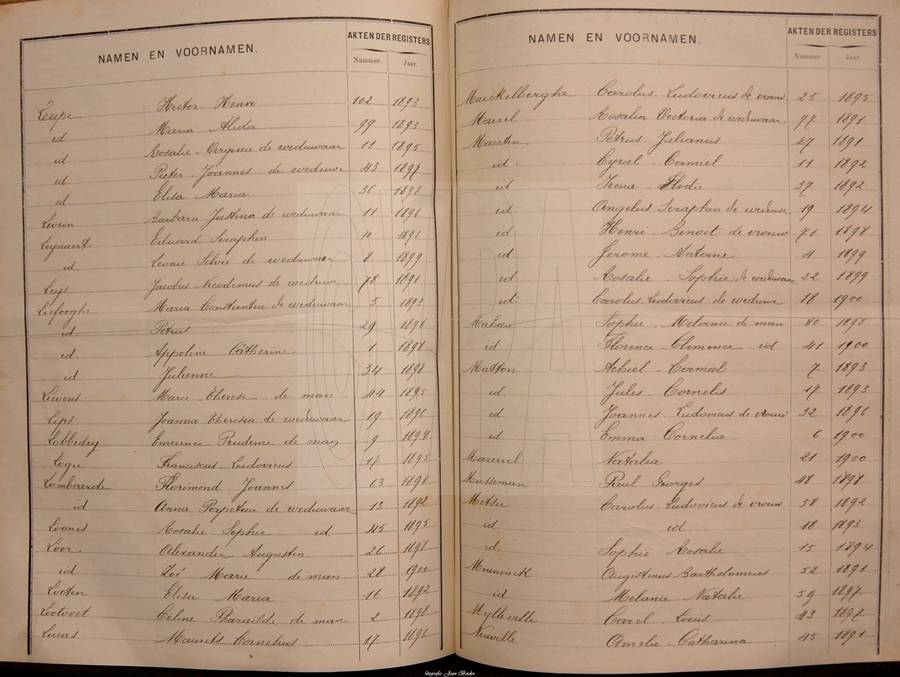 NAMEN EN VOORNAMEN. AKTEN DER REGISTERS
Nummer. Jaar.
Leupe Hector Henri 102 1893
id Maria Alida 99 1893
id Rosalie Virginie de weduwaar 11 1895
id Pieter Joannes de weduwe 43 1897
id Elisa Maria 36 1898
Leverin Barbara Justina de weduwaar 11 1896
Leynaert Eduard Seraphin 10 1891
id Leonie Silvie de weduwaar 8 1899
Leys Jacobus Nicodemus de weduwe 78 1891
Liefooghe Maria Constantia de weduwaar 5 1893
id Petrus 29 1896
id Appoline Catherine 1 1898
id Julienne 34 1898
Lievens Marie Therese de man 44 1895
Lips Joanna Theresia de weduwaar 19 1896
Lobbedey Emerence Prudence de man 9 1894
Logie Franciscus Ludovicus 17 1895
Lombaerde Florimond Joannes 13 1891
id Anna Perpetua de weduwaar 13 1892
Loones Rosalie Sophie id 45 1895
Loor Alexander Augustin 26 1898
id Zoé Marie de man 28 1900
Looten Elisa Maria 16 1892
Lootvoet Celine Pharaïlde de man 2 1898
Lucas Maurits Cornelius 17 1896
NAMEN EN VOORNAMEN. AKTEN DER REGISTERS
Nummer. Jaar.
Maeckelberghe Carolus Ludovicus de vrouw 25 1895
Maerel Rosalia Victoria de weduwaar 97 1891
Maerten Petrus Julianus 27 1891
id Cyriel Camiel 11 1892
id Irena Elodie 37 1892
id Angelus Seraphin de weduwe 19 1894
id Henri Benoit de vrouw 71 1898
id Jerome Antoine 4 1899
id Rosalie Sophie de weduwaar 22 1899
id Carolus Ludovicus de weduwe 18 1900
Mahieu Sophie Melanie de man 80 1898
id Florence Clemence id 41 1900
Matton Achiel Camiel 7 1893
id Jules Cornelis 17 1893
id Joannes Ludovicus de vrouw 32 1896
id Emma Cornelia 6 1900
Mazereel Natalia 21 1900
Meesseman Paul Georges 48 1898
Metsu Carolus Ludovicus de vrouw 58 1892
id id 18 1893
id Sophie Rosalie 15 1894
Meuninck Augustinus Bartholomeus 52 1891
id Melanie Natalie 59 1897
Mylleville Carel Louis 43 1897
Neuville Amelie Catharina 45 1891
fotografie Joan Bolder